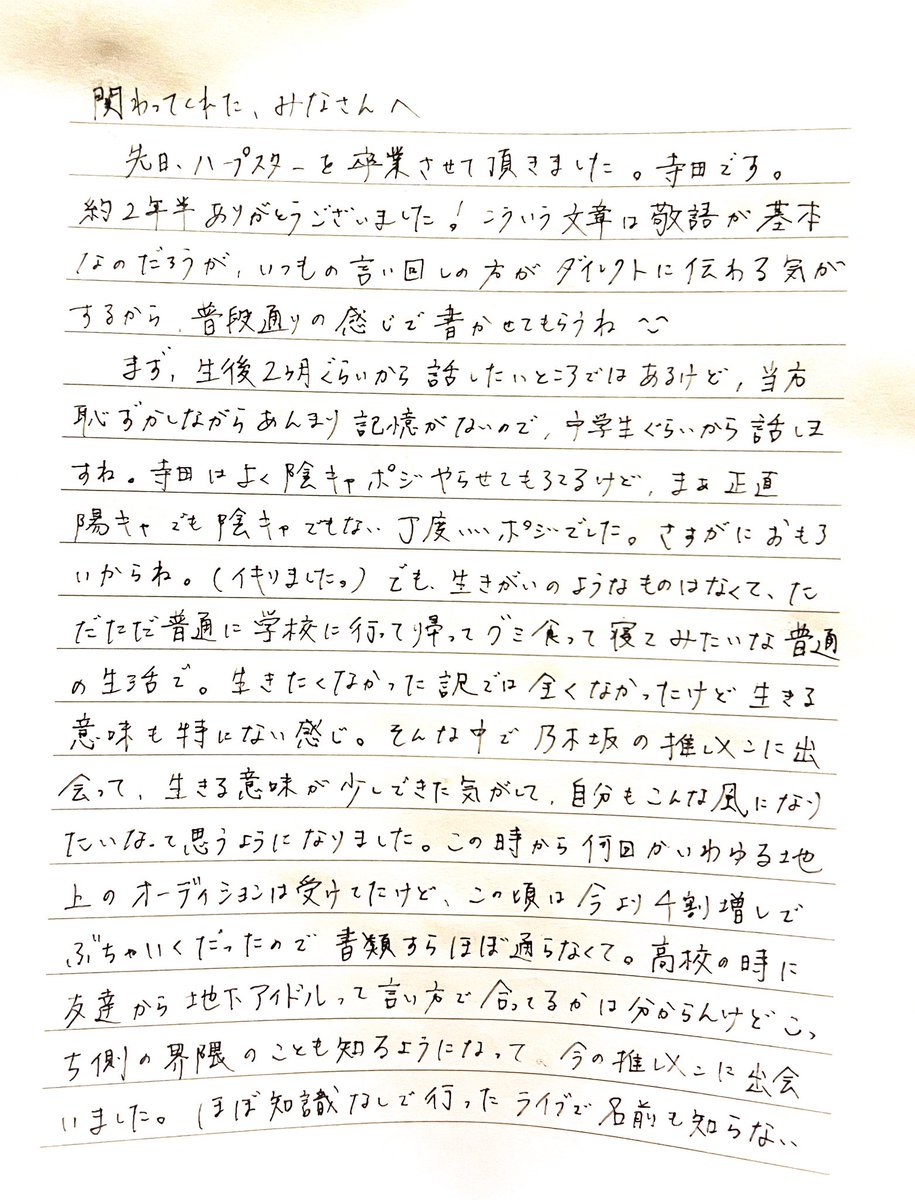 関わってくれた、みなさんへ
先日、ハープスターを卒業させて頂きました。寺田です。
約2年半ありがとうございました！こういう文章は敬語が基本
なのだろうが、いつもの言い回しの方がダイレクトに伝わる気が
するから、普段通りの感じで書かせてもらうね〜
まず、生後2ヶ月ぐらいから話したいところではあるけど、当方
恥ずかしながらあんまり記憶がないので、中学生ぐらいから話しま
すね。寺田はよく陰キャポジやらせてもろてるけど、まぁ正直
陽キャでも陰キャでもない丁度いいポジでした。さすがにおもろ
いからね。(イキりました。)でも、生きがいのようなものはなくて、た
だただ普通に学校に行って帰ってグミ食って寝てみたいな普通
の生活で。生きたくなかった訳では全くなかったけど生きる
意味も特にない感じ。そんな中で乃木坂の推しメンに出
会って、生きる意味が少しできた気がして、自分もこんな風になり
たいなって思うようになりました。この時から何回かいわゆる地
上のオーディションは受けてたけど、この頃は今より4割増しで
ぶちゃいくだったので書類すらほぼ通らなくて。高校の時に
友達から地下アイドルって言い方で合ってるかは分からんけどこっ
ち側の界隈のことも知るようになって、今の推しメンに出会
いました。ほぼ知識なしで行ったライブで名前も知らない